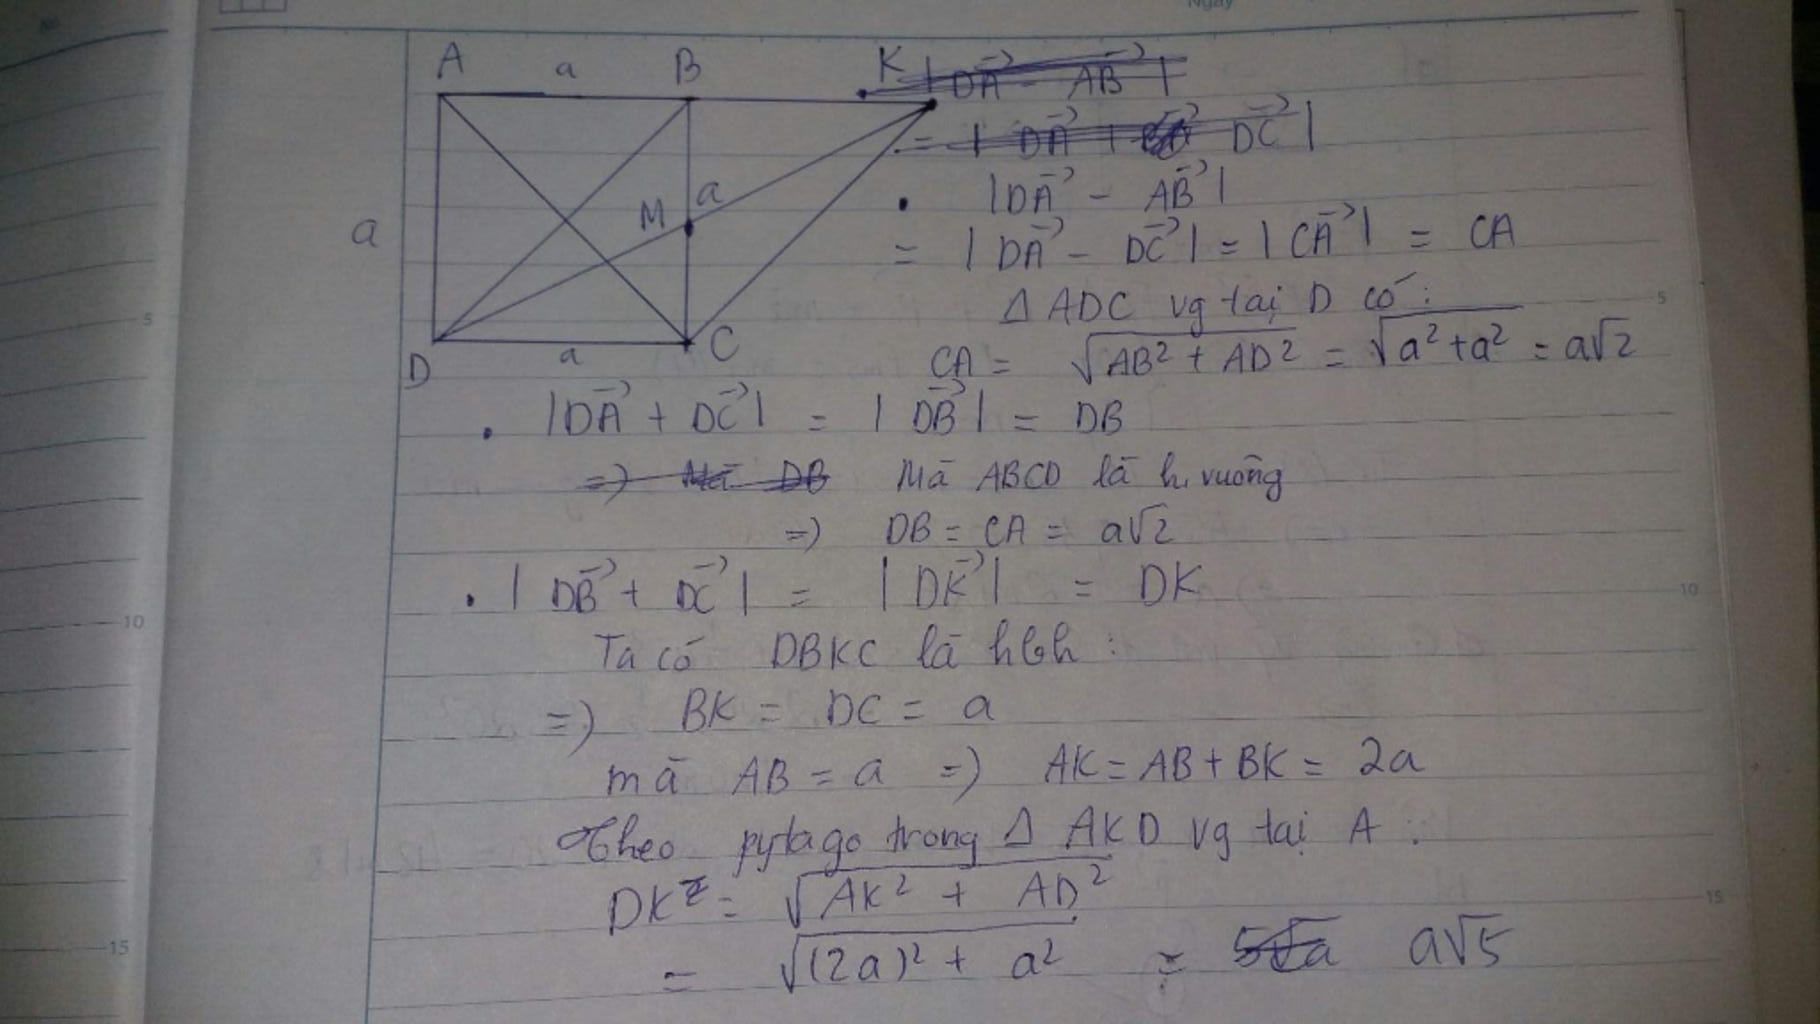 Ngày
A a B K
|DA⃗ - AB⃗|
= |DA⃗ + DC⃗|
M a
a
D a C
. |DA⃗ - AB⃗|
= |DA⃗ - DC⃗| = |CA⃗| = CA
Δ ADC vg tại D có:
CA = √(AB² + AD²) = √(a² + a²) = a√2
. |DA⃗ + DC⃗| = |DB⃗| = DB
=) Mà DB Mà ABCD là h. vuông
=) DB = CA = a√2
. |DB⃗ + DC⃗| = |DK⃗| = DK
Ta có DBKC là hbh:
=) BK = DC = a
mà AB = a =) AK = AB + BK = 2a
Theo pytago trong Δ AKD vg tại A:
DK = √(AK² + AD²)
= √((2a)² + a²) = a√5
5
10
15
5
10
15